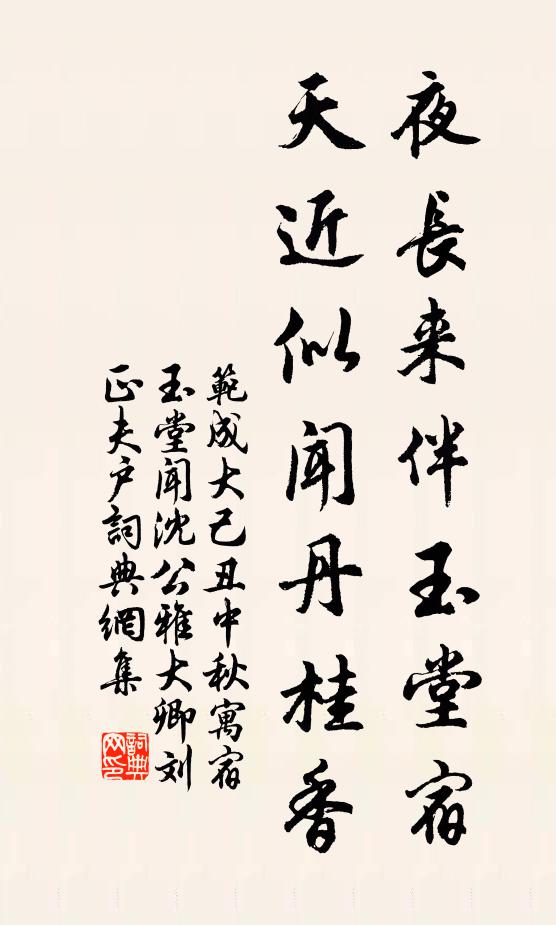 夜長来伴玉堂宿
天近似闻丹桂香
範成大己丑中秋寓宿
玉堂闻沈公雅大卿刘
正夫户詞典網集
詞典
网印